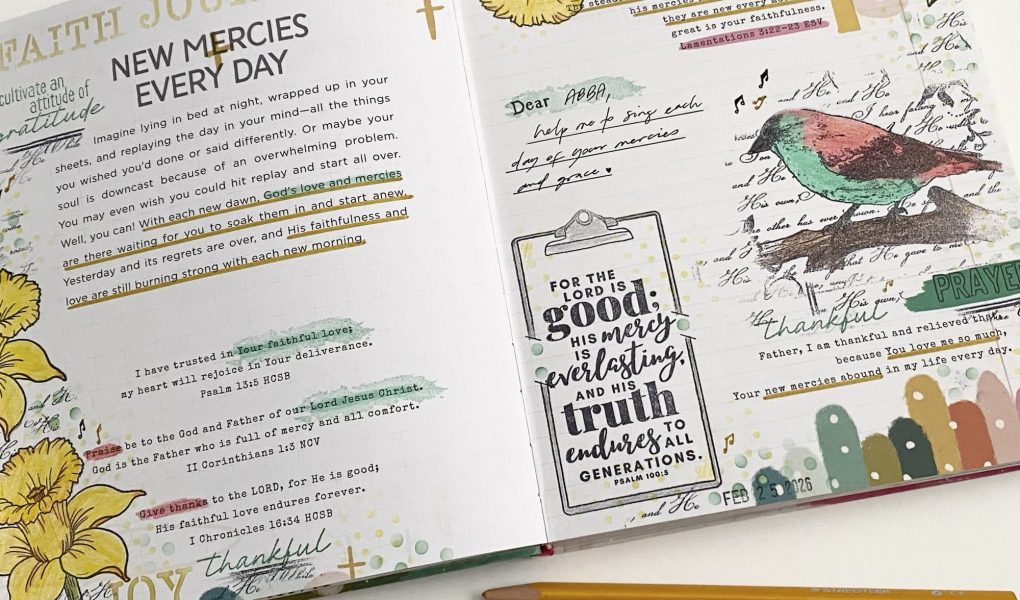 FAITH JOU
NEW MERCIES
EVERY DAY
cultivate an
attitude of
gratitude
Imagine lying in bed at night, wrapped up in your
sheets, and replaying the day in your mind—all the things
you wished you'd done or said differently. Or maybe your
soul is downcast because of an overwhelming problem.
You may even wish you could hit replay and start all over.
Well, you can! With each new dawn, God's love and mercies
are there waiting for you to soak them in and start anew.
Yesterday and its regrets are over, and His faithfulness and
love are still burning strong with each new morning.
I have trusted in Your faithful love;
my heart will rejoice in Your deliverance.
Psalm 13:5 HCSB
Praise be to the God and Father of our Lord Jesus Christ.
God is the Father who is full of mercy and all comfort.
II Corinthians 1:3 NCV
Give thanks to the LORD, for He is good;
His faithful love endures forever.
I Chronicles 16:34 HCSB
thankful
JOY
The steadfast
his mercies
they are new every
great is your faithfulness.
Lamentations 3:22–23 ESV
Dear ABBA,
help me to sing each
day of your mercies
and grace
and He
I have fallen
His own,
no other has ever
that He gave to me
His own,
FOR THE
LORD IS
good;
HIS mercy
IS
everlasting.
AND HIS
truth
endures TO
ALL
GENERATIONS.
PSALM 100:5
and He
FEB 25 2026
PRAYE
thankful
Father, I am thankful and relieved
because You love me so much,
Your new mercies abound in my life every day.
STAEDTLER